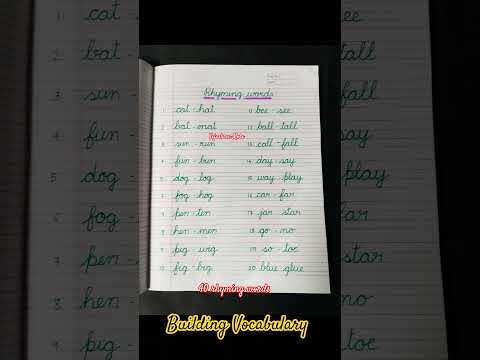 1 cat -
2 bat -
3 sun -
4 fun -
5 dog -
6 fog -
7 pen -
8 hen -
9 pig -
Rhyming words
1. cat - hat
2. bat - mat
3. sun - run
4. fun - bun
5. dog - log
6. fog - hog
7. pen - ten
8. hen - men
9. pig - wig
10. fig - big
11. bee - see
12. ball - tall
13. call - fall
14. day - say
15. way - play
16. car - far
17. jar - star
18. go - no
19. so - toe
20. blue - glue
40 rhyming words
Building Vocabulary
see
tall
fall
say
play
far
star
no
toe